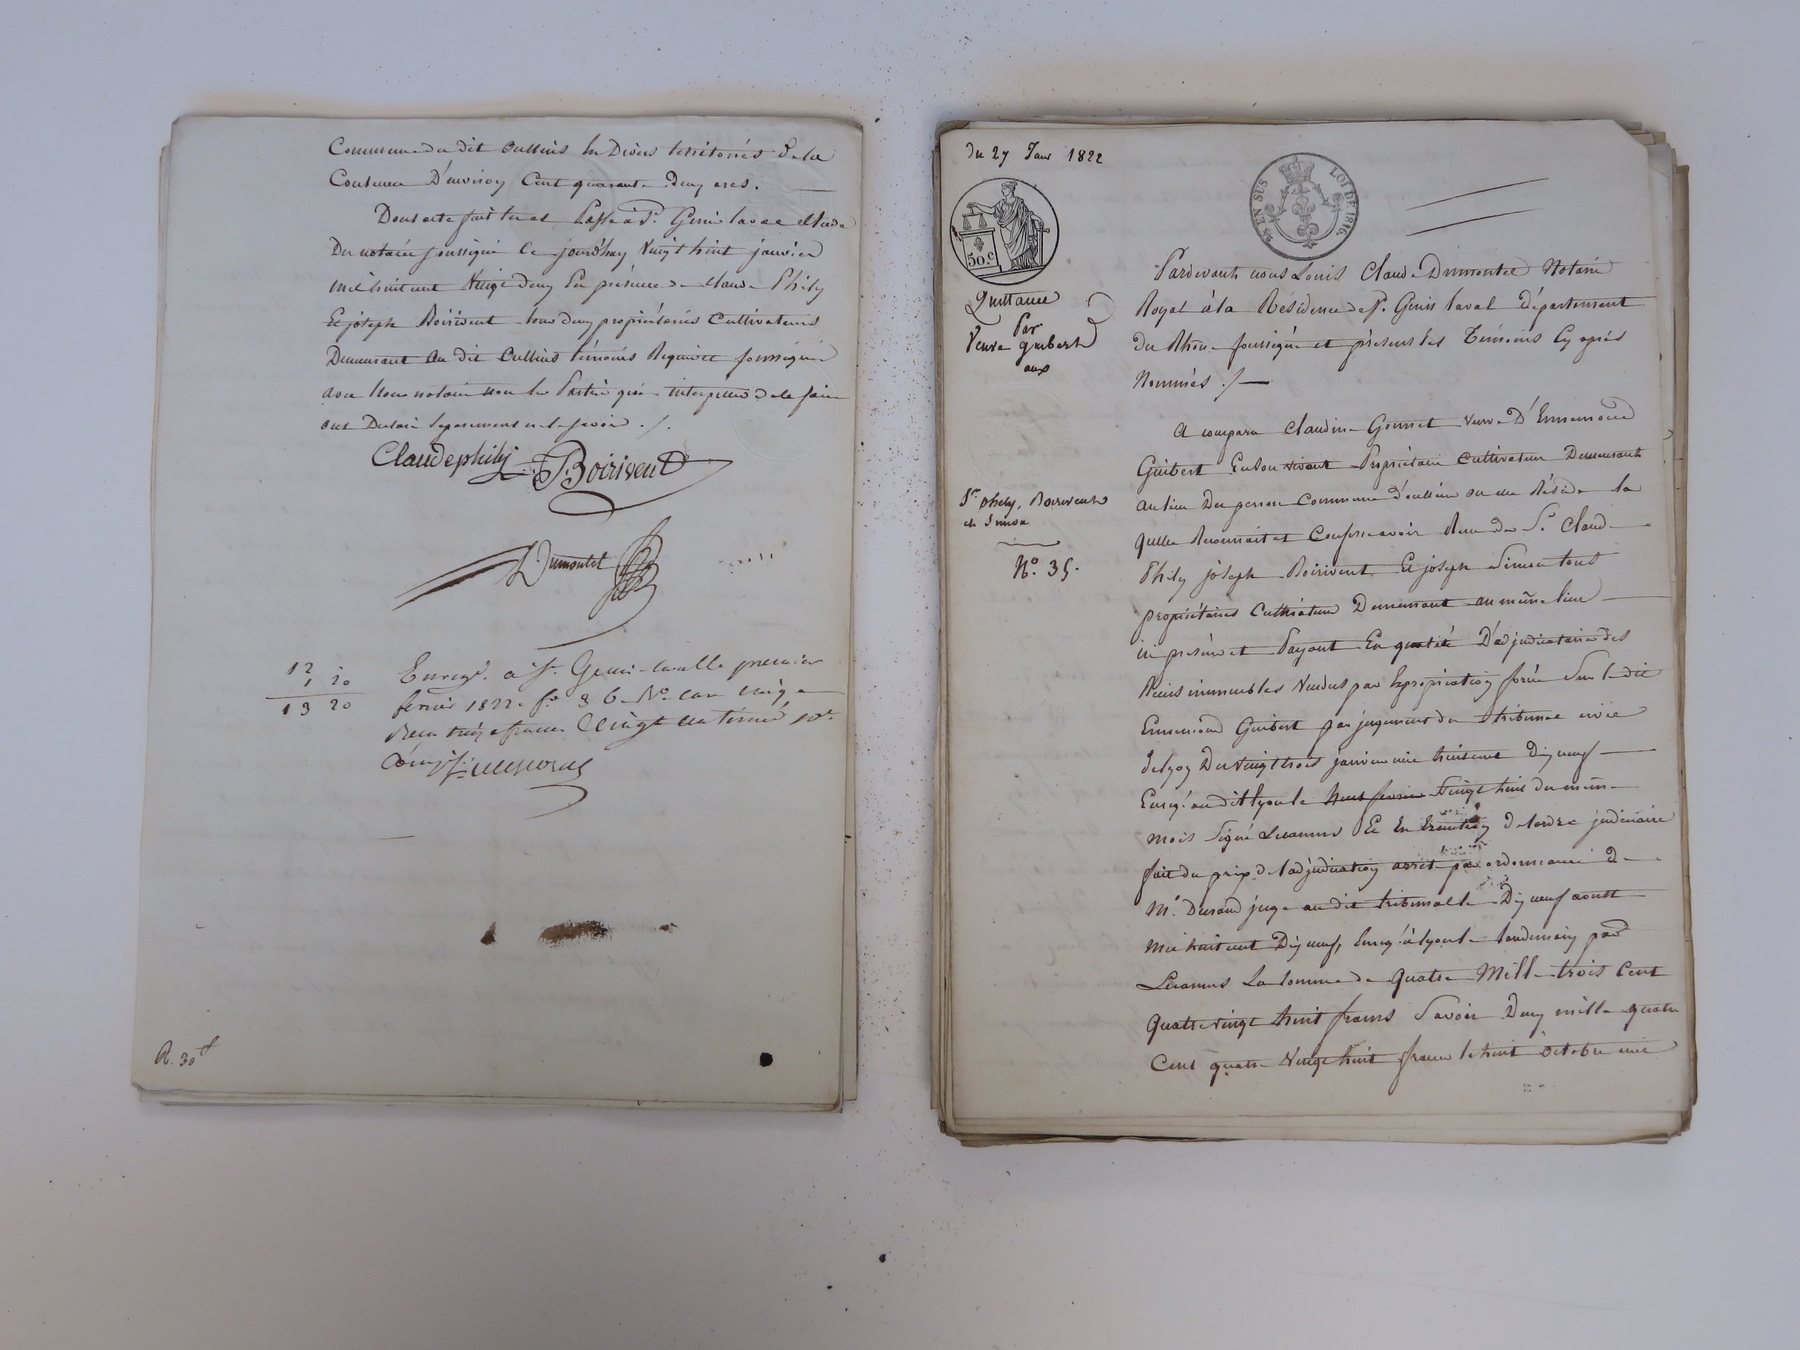 Commune du dit Oullins en Divers territoires De la
Contenue D'environ Cent quarante Deux ares.
Dont acte fait lu et Passé à St. Genis laval étude
Du notaire soussigné le jourd'huy Vingt huit janvier
mil huit cent Vingt Deux En présence de Claude Phily
Et joseph Boirivent tous deux propriétaires Cultivateurs
Demeurant au dit Oullins témoins Requis et soussignés
avec Nous notaire non les Parties qui interpellées de le faire
ont Declaré séparement ne le savoir ./.
Claudephily J. Boirivent
Dumontet
12
1 20
13 20
Enregé. à St. Genis-laval le premier
février 1822 fo 86 Vo Case cinq
Reçu treize francs Vingt centimes 10e.
Compris
R. 30 f
du 27 Janv 1822
50 c
EN SUS
LOI DE 1816.
Quittance
Par
Veuve guibert
aux
Srs phily, Boirivent
et Simon
No. 35.
Pardevant nous Louis Claude Dumontet Notaire
Royal à la Résidence de St. Genis laval Département
du Rhône soussigné et présents les Témoins Cy après
Nommés ./.
A comparu Claudine Gonnet Veuve D'Ennemond
Guibert En son vivant Propriétaire Cultivateur Demeurant
au lieu Du perron Commune d'oullins ou elle Réside la
quelle Reconnait et Confesse avoir Reçu des Srs Claude
Phily joseph Boirivent Et joseph Simon tous
propriétaires Cultivateurs Demeurant au même lieu
ici présents et Payant En qualité D'adjudicataires des
Biens immeubles Vendus par Expropriation forcée Sur le dit
Ennemond Guibert par jugement du tribunal civil
de lyon Du Vingt trois janvier mil huit cent Dix neuf
Enregé. au dit lyon le Vingt huit du même
mois Signé Lecamus Et En de lordre judiciaire
fait du prix de l'adjudication arreté par ordonnance de
Mr. Durand juge au dit tribunal le Dix neuf aoust
mil huit cent Dix neuf, Enregé. à lyon le lendemain par
Lecamus La somme de Quatre Mille trois Cent
Quatre vingt huit francs Savoir Deux mille quatre
Cent quatre Vingt huit francs le huit octobre mil